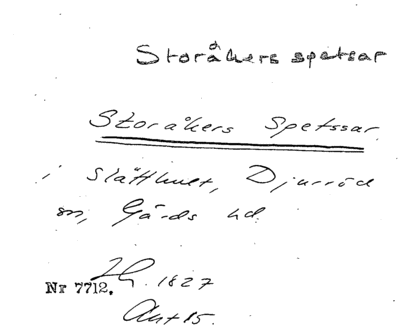 Storåkers spetsar
Storåkers Spetssar.
i Slätthult, Djurröd
sn, Gärds hd.
1827
Nr 7712.
Akt 85.